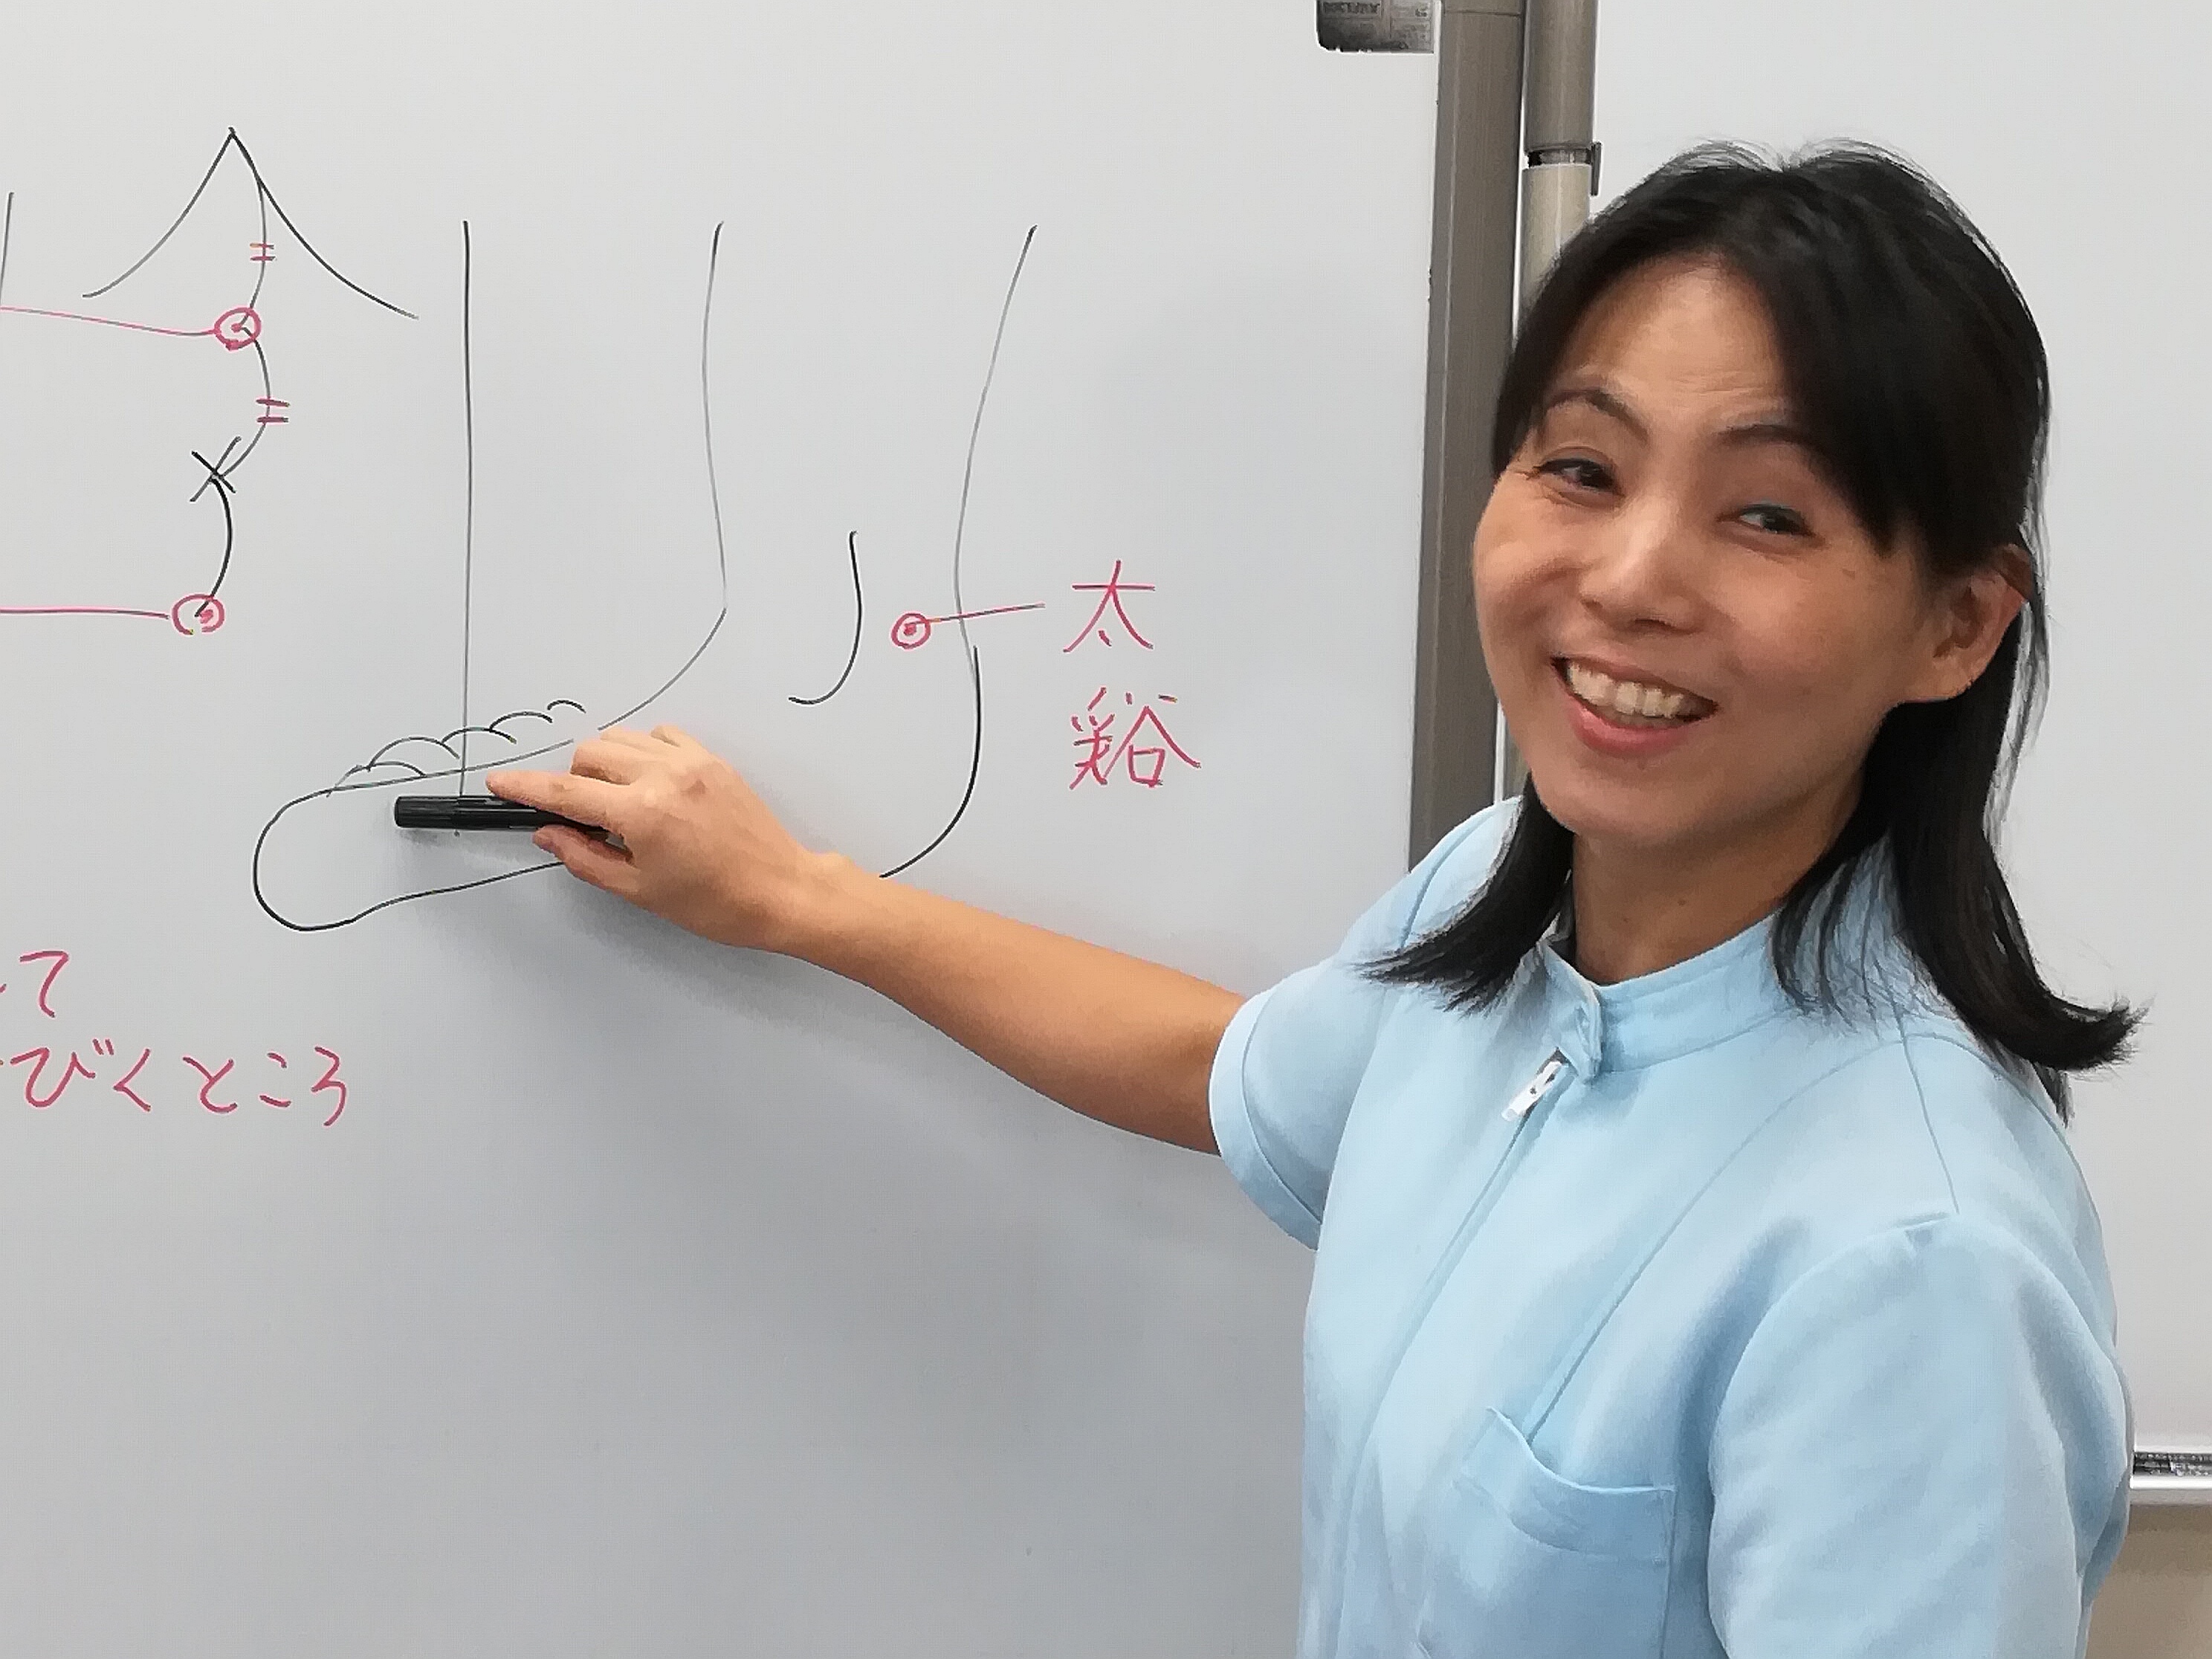 太
谿
て
びくところ